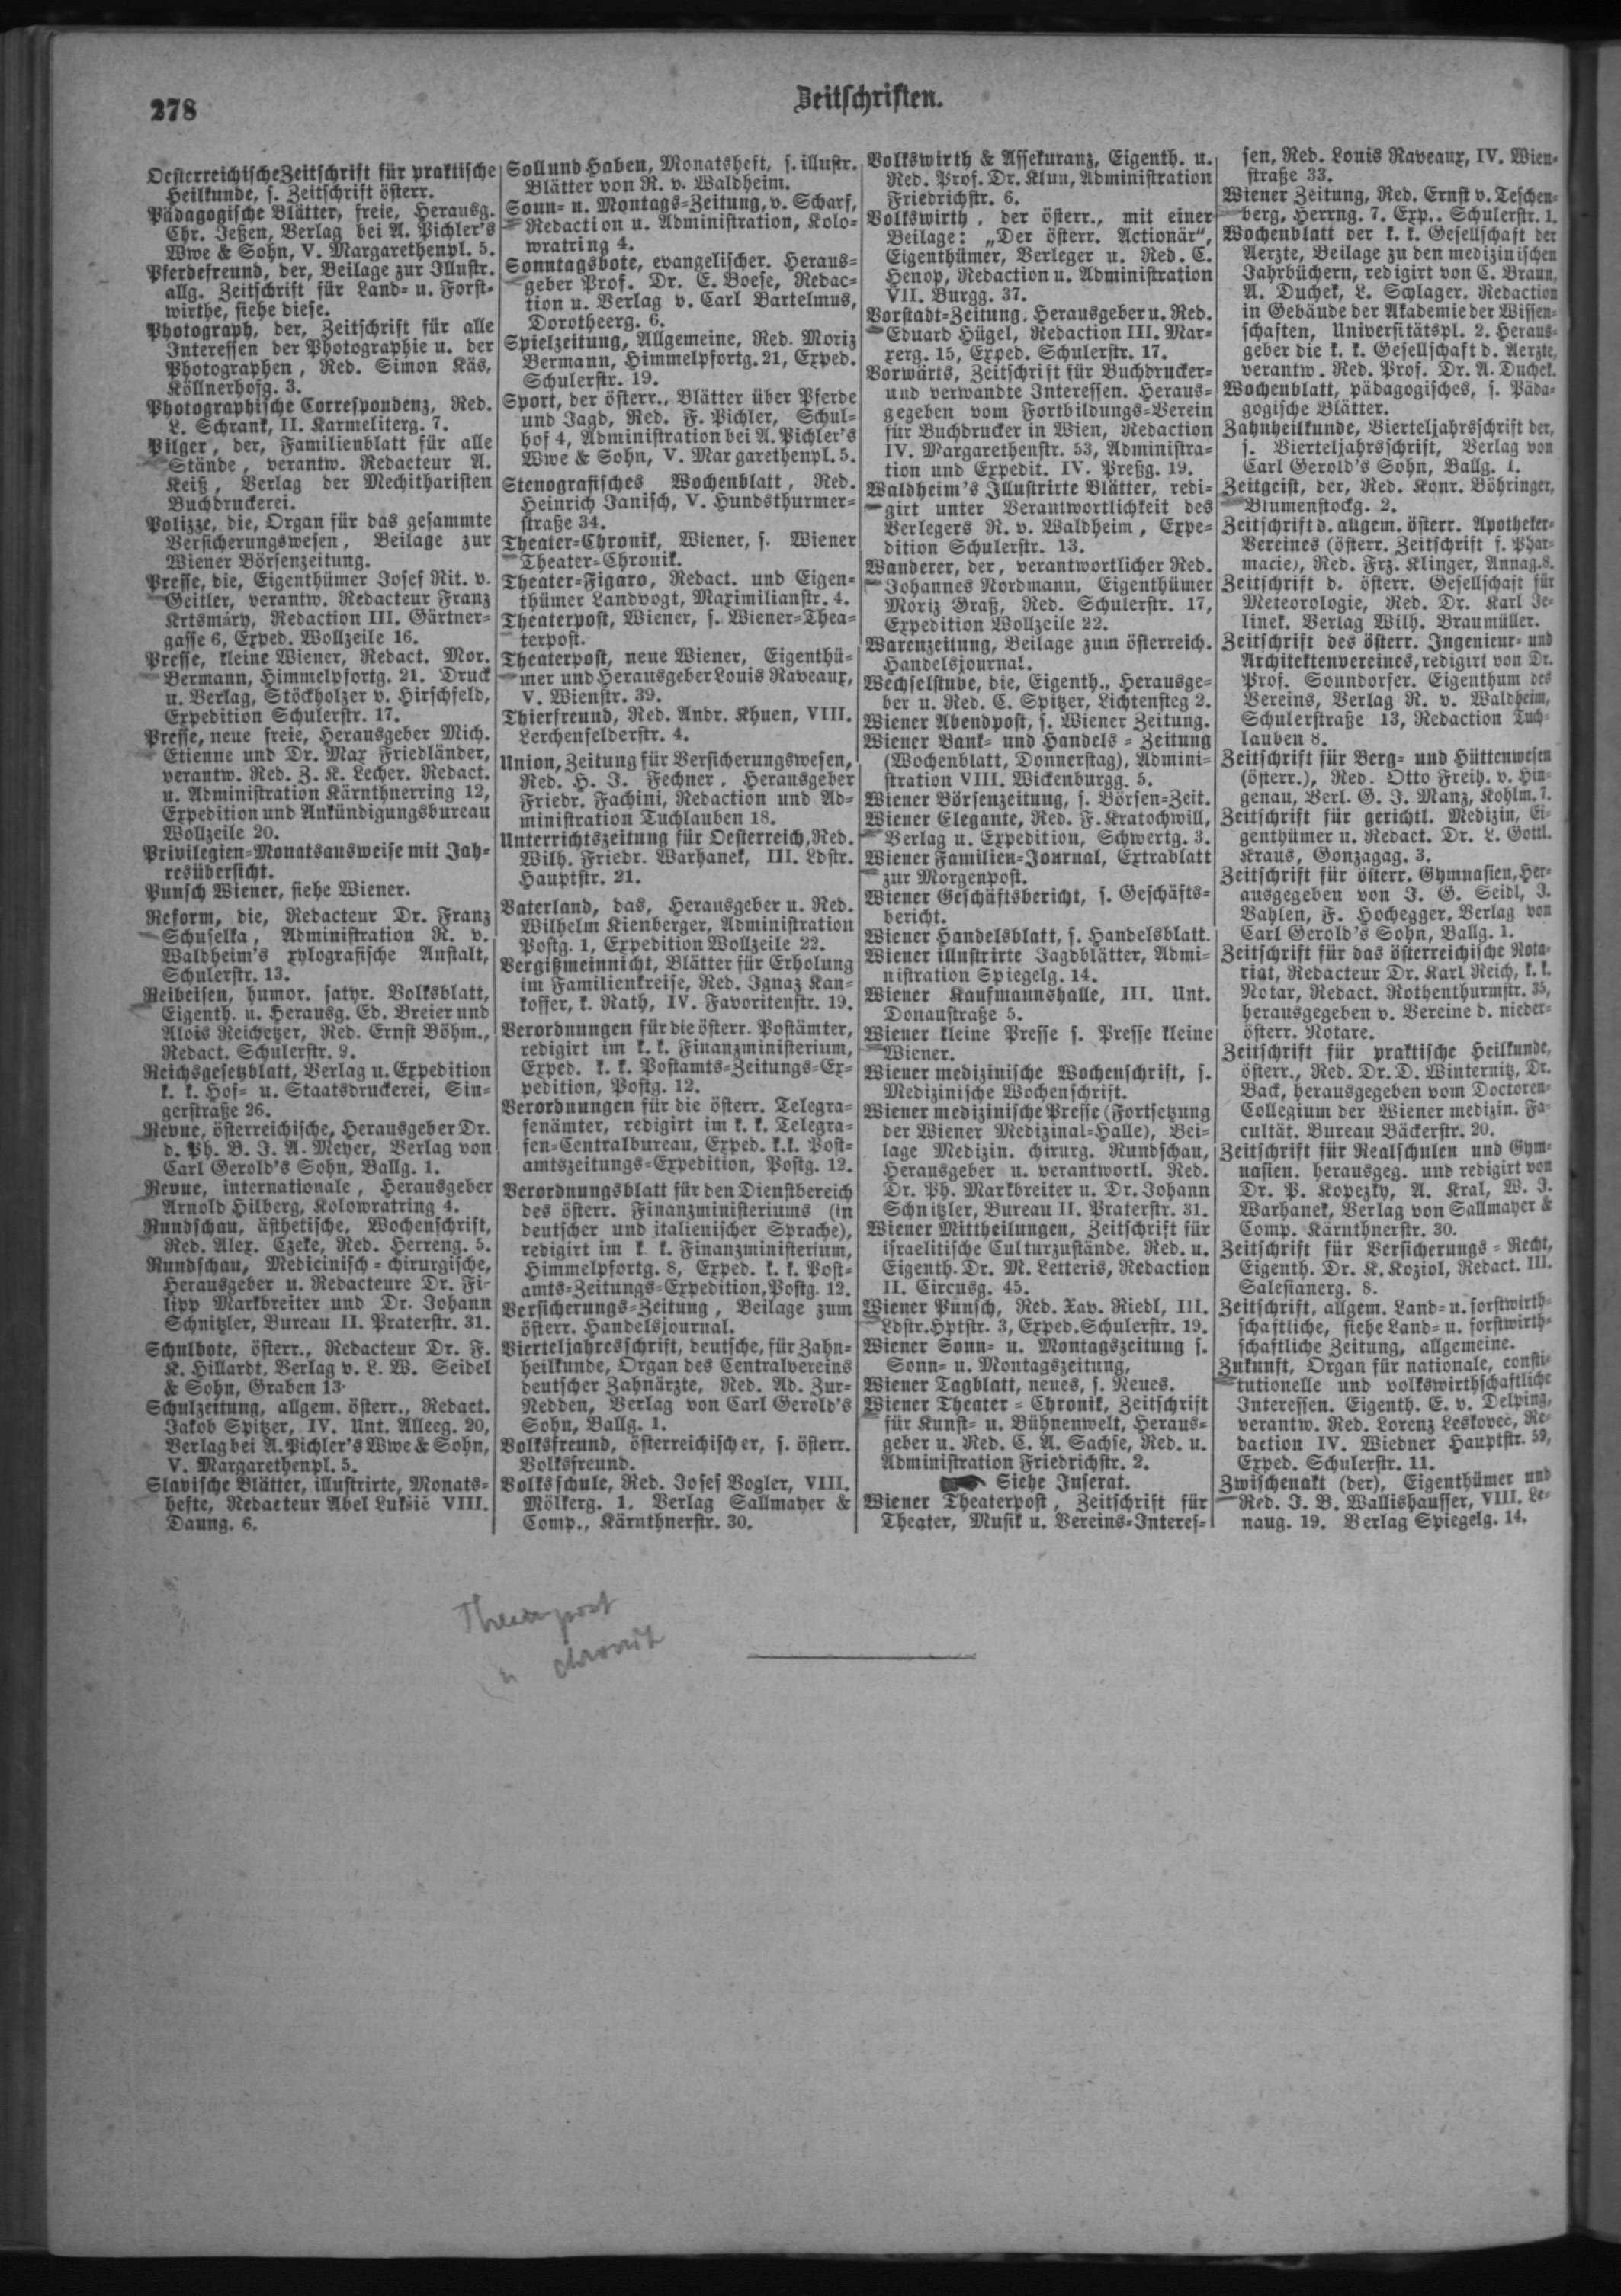 278
Zeitschriften.
Oesterreichische Zeitschrift für praktische
Heilkunde, s. Zeitschrift österr.
Pädagogische Blätter, freie, Herausg.
Chr. Jeßen, Verlag bei A. Pichler's
Wwe & Sohn, V. Margarethenpl. 5.
Pferdefreund, der, Beilage zur Illustr.
allg. Zeitschrift für Land- u. Forst-
wirthe, siehe diese.
Photograph, der, Zeitschrift für alle
Interessen der Photographie u. der
Photographen, Red. Simon Käs,
Köllnerhofg. 3.
Photographische Correspondenz, Red.
L. Schrank, II. Karmeliterg. 7.
Pilger, der, Familienblatt für alle
Stände, verantw. Redacteur A.
Keiß, Verlag der Mechitharisten
Buchdruckerei.
Polizze, die, Organ für das gesammte
Versicherungswesen, Beilage zur
Wiener Börsenzeitung.
Presse, die, Eigenthümer Josef Rit. v.
Geitler, verantw. Redacteur Franz
Krtsmáry, Redaction III. Gärtner-
gasse 6, Exped. Wollzeile 16.
Presse, kleine Wiener, Redact. Mor.
Bermann, Himmelpfortg. 21. Druck
u. Verlag, Stöckholzer v. Hirschfeld,
Expedition Schulerstr. 17.
Presse, neue freie, Herausgeber Mich.
Etienne und Dr. Max Friedländer,
verantw. Red. Z. K. Lecher. Redact.
u. Administration Kärnthnerring 12,
Expedition und Ankündigungsbureau
Wollzeile 20.
Privilegien-Monatsausweise mit Jah-
resübersicht.
Punsch Wiener, siehe Wiener.
Reform, die, Redacteur Dr. Franz
Schuselka, Administration R. v.
Waldheim's xylografische Anstalt,
Schulerstr. 13.
Reibeisen, humor. satyr. Volksblatt,
Eigenth. u. Herausg. Ed. Breier und
Alois Reichetzer, Red. Ernst Böhm.,
Redact. Schulerstr. 9.
Reichsgesetzblatt, Verlag u. Expedition
k. k. Hof- u. Staatsdruckerei, Sin-
gerstraße 26.
Revue, österreichische, Herausgeber Dr.
d. Ph. B. J. A. Meyer, Verlag von
Carl Gerold's Sohn, Ballg. 1.
Revue, internationale, Herausgeber
Arnold Hilberg, Kolowratring 4.
Rundschau, ästhetische, Wochenschrift,
Red. Alex. Czeke, Red. Herreng. 5.
Rundschau, Medicinisch-chirurgische,
Herausgeber u. Redacteure Dr. Fi-
lipp Markbreiter und Dr. Johann
Schnitzler, Bureau II. Praterstr. 31.
Schulbote, österr., Redacteur Dr. F.
K. Hillardt. Verlag v. L. W. Seidel
& Sohn, Graben 13.
Schulzeitung, allgem. österr., Redact.
Jakob Spitzer, IV. Unt. Alleeg. 20,
Verlag bei A. Pichler's Wwe & Sohn,
V. Margarethenpl. 5.
Slavische Blätter, illustrirte, Monats-
hefte, Redacteur Abel Lukšič VIII.
Daung. 6.
Soll und Haben, Monatsheft, s. illustr.
Blätter von R. v. Waldheim.
Sonn- u. Montags-Zeitung, v. Scharf,
Redaction u. Administration, Kolo-
wratring 4.
Sonntagsbote, evangelischer. Heraus-
geber Prof. Dr. E. Boese, Redac-
tion u. Verlag v. Carl Bartelmus,
Dorotheerg. 6.
Spielzeitung, Allgemeine, Red. Moriz
Bermann, Himmelpfortg. 21, Exped.
Schulerstr. 19.
Sport, der österr., Blätter über Pferde
und Jagd, Red. F. Pichler, Schul-
hof 4, Administration bei A. Pichler's
Wwe & Sohn, V. Margarethenpl. 5.
Stenografisches Wochenblatt, Red.
Heinrich Janisch, V. Hundsthurmer-
straße 34.
Theater-Chronik, Wiener, s. Wiener
Theater-Chronik.
Theater-Figaro, Redact. und Eigen-
thümer Landvogt, Maximilianstr. 4.
Theaterpost, Wiener, s. Wiener-Thea-
terpost.
Theaterpost, neue Wiener, Eigenthü-
mer und Herausgeber Louis Raveaux,
V. Wienstr. 39.
Thierfreund, Red. Andr. Khuen, VIII.
Lerchenfelderstr. 4.
Union, Zeitung für Versicherungswesen,
Red. H. J. Fechner, Herausgeber
Friedr. Fachini, Redaction und Ad-
ministration Tuchlauben 18.
Unterrichtszeitung für Oesterreich, Red.
Wilh. Friedr. Warhanek, III. Ldstr.
Hauptstr. 21.
Vaterland, das, Herausgeber u. Red.
Wilhelm Kienberger, Administration
Postg. 1, Expedition Wollzeile 22.
Vergißmeinnicht, Blätter für Erholung
im Familienkreise, Red. Ignaz Kan-
koffer, k. Rath, IV. Favoritenstr. 19.
Verordnungen für die österr. Postämter,
redigirt im k. k. Finanzministerium,
Exped. k. k. Postamts-Zeitungs-Ex-
pedition, Postg. 12.
Verordnungen für die österr. Telegra-
fenämter, redigirt im k. k. Telegra-
fen-Centralbureau, Exped. k.k. Post-
amtszeitungs-Expedition, Postg. 12.
Verordnungsblatt für den Dienstbereich
des österr. Finanzministeriums (in
deutscher und italienischer Sprache),
redigirt im k k. Finanzministerium,
Himmelpfortg. 8, Exped. k. k. Post-
amts-Zeitungs-Expedition, Postg. 12.
Versicherungs-Zeitung, Beilage zum
österr. Handelsjournal.
Vierteljahresschrift, deutsche, für Zahn-
heilkunde, Organ des Centralvereins
deutscher Zahnärzte, Red. Ad. Zur-
Nedden, Verlag von Carl Gerold's
Sohn, Ballg. 1.
Volksfreund, österreichischer, s. österr.
Volksfreund.
Volksschule, Red. Josef Vogler, VIII.
Mölkerg. 1, Verlag Sallmayer &
Comp., Kärnthnerstr. 30.
Volkswirth & Assekuranz, Eigenth. u.
Red. Prof. Dr. Klun, Administration
Friedrichstr. 6.
Volkswirth, der österr., mit einer
Beilage: „Der österr. Actionär“,
Eigenthümer, Verleger u. Red. C.
Henop, Redaction u. Administration
VII. Burgg. 37.
Vorstadt-Zeitung, Herausgeber u. Red.
Eduard Hügel, Redaction III. Mar-
xerg. 15, Exped. Schulerstr. 17.
Vorwärts, Zeitschrift für Buchdrucker-
und verwandte Interessen. Heraus-
gegeben vom Fortbildungs-Verein
für Buchdrucker in Wien, Redaction
IV. Margarethenstr. 53, Administra-
tion und Expedit. IV. Preßg. 19.
Waldheim's Illustrirte Blätter, redi-
girt unter Verantwortlichkeit des
Verlegers R. v. Waldheim, Expe-
dition Schulerstr. 13.
Wanderer, der, verantwortlicher Red.
Johannes Nordmann, Eigenthümer
Moriz Graß, Red. Schulerstr. 17,
Expedition Wollzeile 22.
Warenzeitung, Beilage zum österreich.
Handelsjournal.
Wechselstube, die, Eigenth., Herausge-
ber u. Red. C. Spitzer, Lichtensteg 2.
Wiener Abendpost, s. Wiener Zeitung.
Wiener Bank- und Handels-Zeitung
(Wochenblatt, Donnerstag), Admini-
stration VIII. Wickenburgg. 5.
Wiener Börsenzeitung, s. Börsen-Zeit.
Wiener Elegante, Red. F. Kratochwill,
Verlag u. Expedition, Schwertg. 3.
Wiener Familien-Journal, Extrablatt
zur Morgenpost.
Wiener Geschäftsbericht, s. Geschäfts-
bericht.
Wiener Handelsblatt, s. Handelsblatt.
Wiener illustrirte Jagdblätter, Admi-
nistration Spiegelg. 14.
Wiener Kaufmannshalle, III. Unt.
Donaustraße 5.
Wiener kleine Presse s. Presse kleine
Wiener.
Wiener medizinische Wochenschrift, s.
Medizinische Wochenschrift.
Wiener medizinische Presse (Fortsetzung
der Wiener Medizinal-Halle), Bei-
lage Medizin. chirurg. Rundschau,
Herausgeber u. verantwortl. Red.
Dr. Ph. Markbreiter u. Dr. Johann
Schnitzler, Bureau II. Praterstr. 31.
Wiener Mittheilungen, Zeitschrift für
israelitische Culturzustände. Red. u.
Eigenth. Dr. M. Letteris, Redaction
II. Circusg. 45.
Wiener Punsch, Red. Xav. Riedl, III.
Ldstr. Hptstr. 3, Exped. Schulerstr. 19.
Wiener Sonn- u. Montagszeitung s.
Sonn- u. Montagszeitung,
Wiener Tagblatt, neues, s. Neues.
Wiener Theater-Chronik, Zeitschrift
für Kunst- u. Bühnenwelt, Heraus-
geber u. Red. C. A. Sachse, Red. u.
Administration Friedrichstr. 2.
Siehe Inserat.
Wiener Theaterpost, Zeitschrift für
Theater, Musik u. Vereins-Interes-
sen, Red. Louis Raveaux, IV. Wien-
straße 33.
Wiener Zeitung, Red. Ernst v. Teschen-
berg, Herrng. 7. Exp.. Schulerstr. 1.
Wochenblatt der k. k. Gesellschaft der
Aerzte, Beilage zu den medizinischen
Jahrbüchern, redigirt von C. Braun,
A. Duchek, L. Schlager. Redaction
in Gebäude der Akademie der Wissen-
schaften, Universitätspl. 2. Heraus-
geber die k. k. Gesellschaft d. Aerzte,
verantw. Red. Prof. Dr. A. Duchek.
Wochenblatt, pädagogisches, s. Päda-
gogische Blätter.
Zahnheilkunde, Vierteljahrsschrift der,
s. Vierteljahrsschrift, Verlag von
Carl Gerold's Sohn, Ballg. 1.
Zeitgeist, der, Red. Konr. Böhringer,
Blumenstockg. 2.
Zeitschrift d. allgem. österr. Apotheker-
Vereines (österr. Zeitschrift f. Phar-
macie), Red. Frz. Klinger, Annag. 8.
Zeitschrift d. österr. Gesellschaft für
Meteorologie, Red. Dr. Karl Je-
linek. Verlag Wilh. Braumüller.
Zeitschrift des österr. Ingenieur- und
Architektenvereines, redigirt von Dr.
Prof. Sonndorfer. Eigenthum des
Vereins, Verlag R. v. Waldheim,
Schulerstraße 13, Redaction Tuch-
lauben 8.
Zeitschrift für Berg- und Hüttenwesen
(österr.), Red. Otto Freih. v. Hin-
genau, Verl. G. J. Manz, Kohlm. 7.
Zeitschrift für gerichtl. Medizin, Ei-
genthümer u. Redact. Dr. L. Gottl.
Kraus, Gonzagag. 3.
Zeitschrift für österr. Gymnasien, Her-
ausgegeben von J. G. Seidl, J.
Vahlen, F. Hochegger, Verlag von
Carl Gerold's Sohn, Ballg. 1.
Zeitschrift für das österreichische Nota-
riat, Redacteur Dr. Karl Reich, k. k.
Notar, Redact. Rothenthurmstr. 35,
herausgegeben v. Vereine d. nieder-
österr. Notare.
Zeitschrift für praktische Heilkunde,
österr., Red. Dr. D. Winternitz, Dr.
Back, herausgegeben vom Doctoren-
Collegium der Wiener medizin. Fa-
cultät. Bureau Bäckerstr. 20.
Zeitschrift für Realschulen und Gym-
nasien. herausgeg. und redigirt von
Dr. P. Kopezky, A. Kral, W. J.
Warhanek, Verlag von Sallmayer &
Comp. Kärnthnerstr. 30.
Zeitschrift für Versicherungs-Recht,
Eigenth. Dr. K. Koziol, Redact. III.
Salesianerg. 8.
Zeitschrift, allgem. Land- u. forstwirth-
schaftliche, siehe Land- u. forstwirth-
schaftliche Zeitung, allgemeine.
Zukunft, Organ für nationale, consti-
tutionelle und volkswirthschaftliche
Interessen. Eigenth. E. v. Delping,
verantw. Red. Lorenz Leskovec, Re-
daction IV. Wiedner Hauptstr. 59,
Exped. Schulerstr. 11.
Zwischenakt (der), Eigenthümer und
Red. J. B. Wallishausser, VIII. Le-
naug. 19. Verlag Spiegelg. 14.
Theaterpost
u chronik